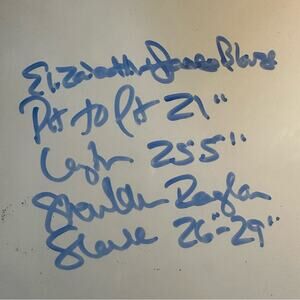 Elizabeth James Blouse
Pit to Pit 21"
Length 25.5"
Shoulder Raglan
Sleeve 26"-29"